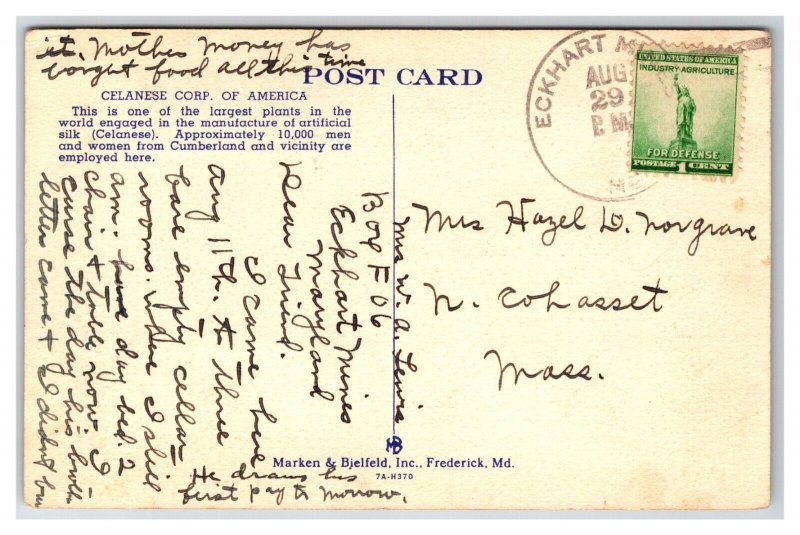 POST CARD
CELANESE CORP. OF AMERICA
This is one of the largest plants in the
world engaged in the manufacture of artificial
silk (Celanese). Approximately 10,000 men
and women from Cumberland and vicinity are
employed here.
ECKHART M
AUG
29
P M
UNITED STATES OF AMERICA
INDUSTRY · AGRICULTURE
FOR DEFENSE
POSTAGE 1 CENT
Mrs Hazel D. Norgrave
N. Cohasset
Mass.
Mrs W. A. Lewis
Box F06
Eckhart Mines
Maryland
Dear Friend.
I came here
Aug 11th. to three
bare empty cellar
rooms. where I still
am. have day bed. 2
chair & table now. I
curse the day his brother
letter came & I didn't burn
it. Mother money has
bought food all this time
He draws his
first pay to morrow.
Marken & Bielfeld, Inc., Frederick, Md.
7A-H370